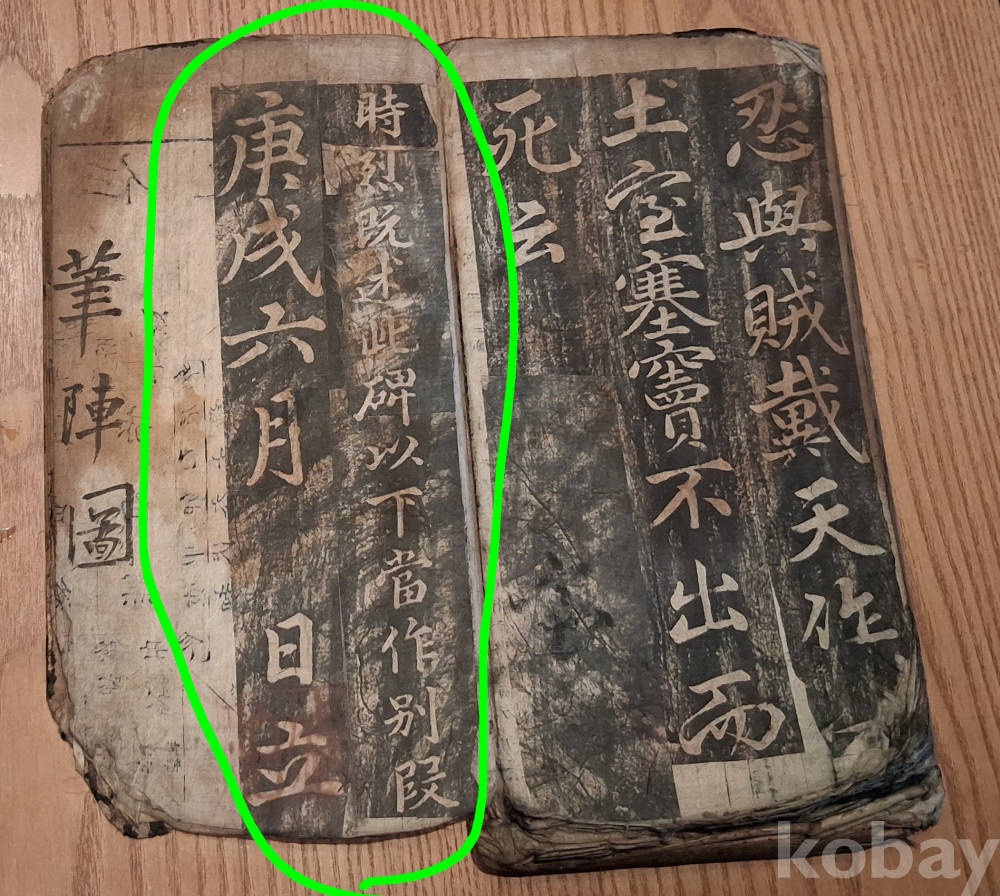 忍與賊戴天作
土室塞竇不出而
死云
時烈既述此碑以下當作別段
庚戌六月 日立
筆陣圖
kobay